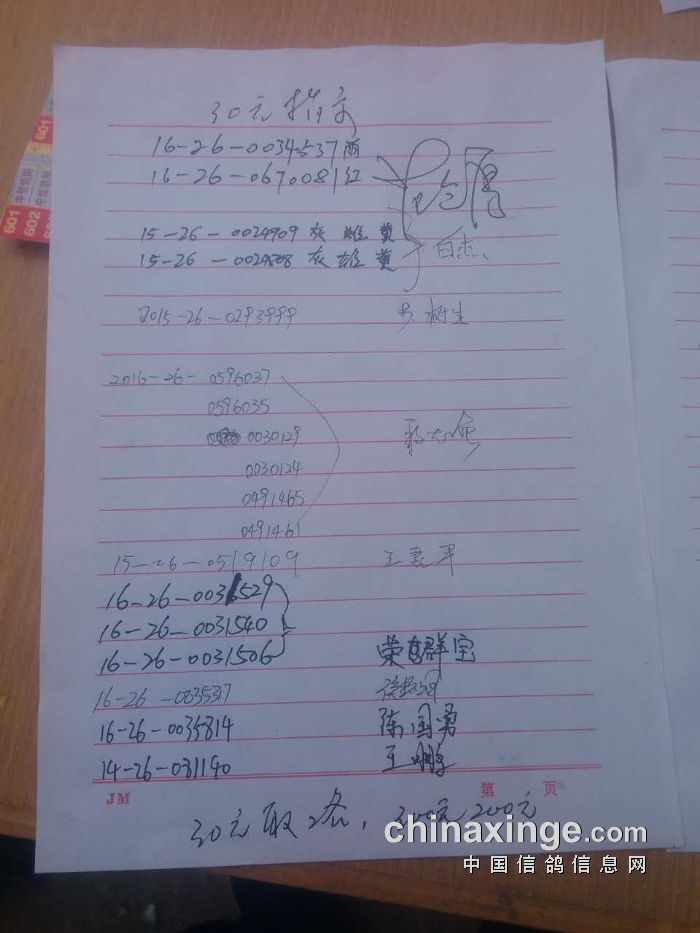 30元指定
16-26-0034537雨
16-26-0670081红
15-26-0024909 灰 雄 黄
15-26-0024808 灰 雄 黄 白杰
2015-26-0293999 树生
2016-26-0596037
0596035
0030129
0030124
0491465
0491461
15-26-0519109 王素平
16-26-0031529
16-26-0031540
16-26-0031506 荣群宝
16-26-0035317
16-26-0035814 陈国勇
14-26-031140 王鹏
JM 第 页
30元取2名，300元200元
chinaxinge.com
中国信鸽信息网
601
601
602